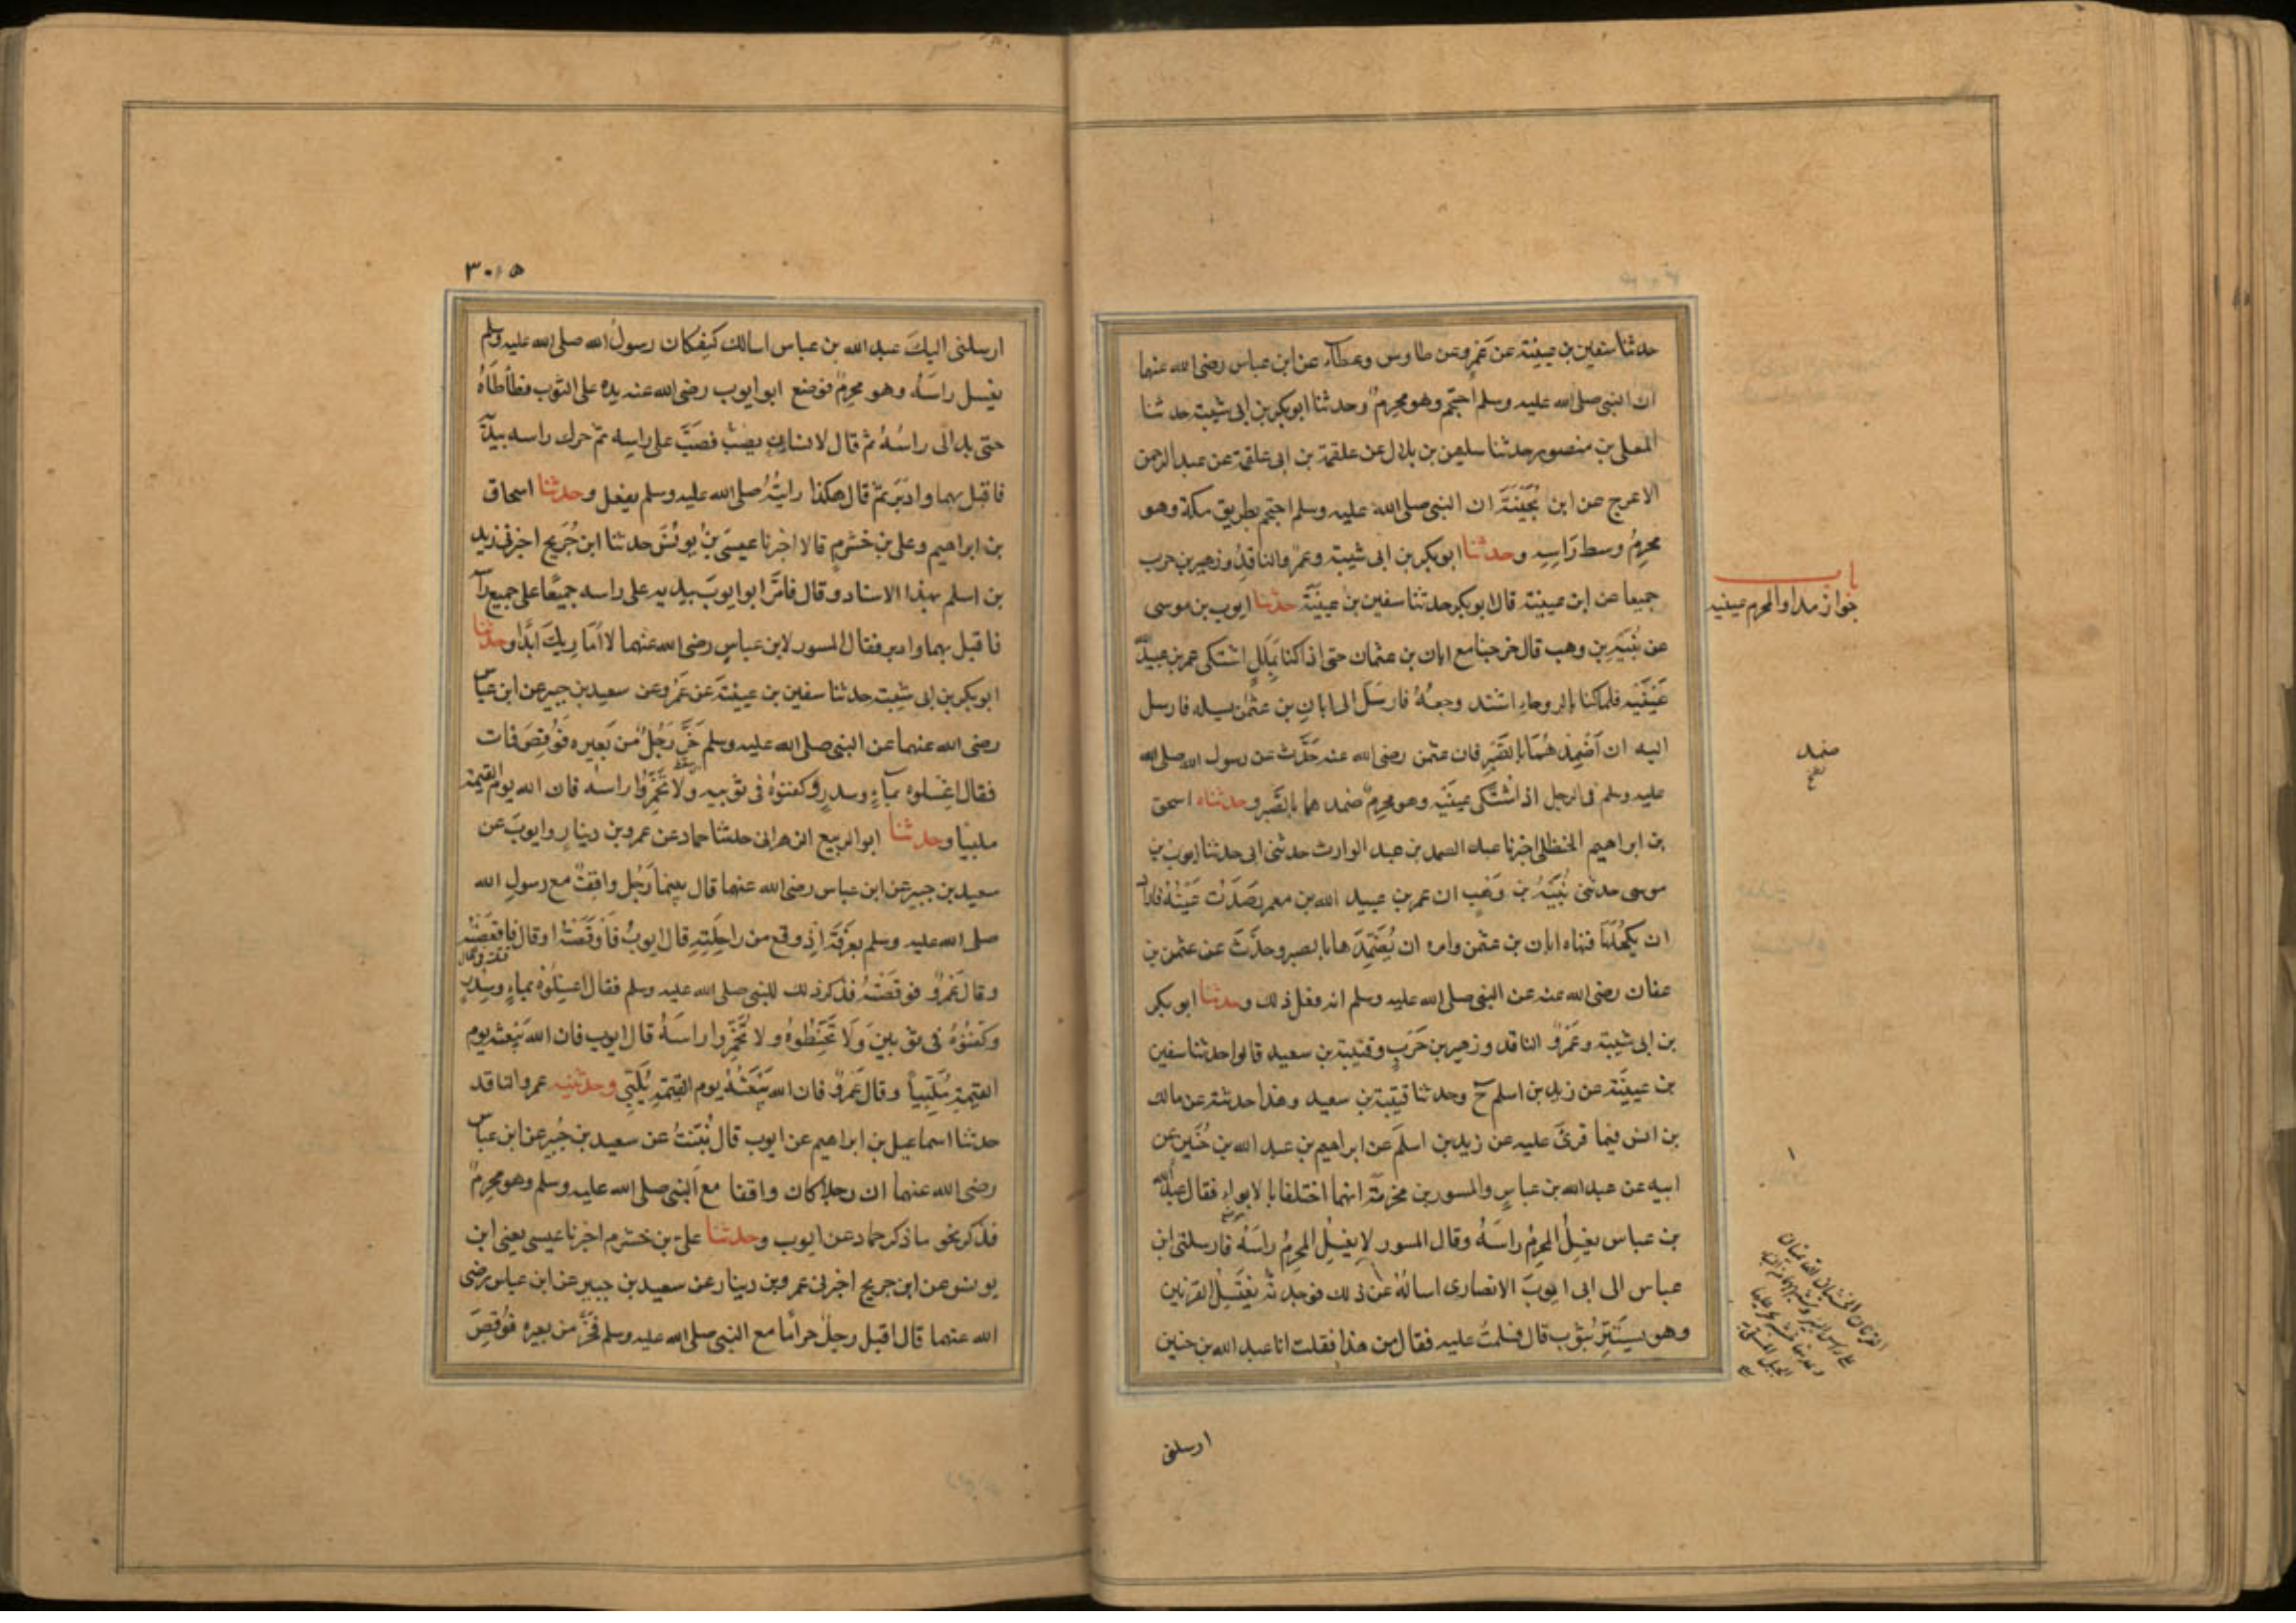 حدثنا سفين بن عيينة عن عمرو عن طاوس وعطآء عن ابن عباس رضى الله عنهما
ان النبى صلى الله عليه وسلم احتجم وهو محرمٌ وحدثنا ابوبكر بن ابى شيبة حدثنا
المعلى بن منصور حدثنا سليمن بن بلال عن علقمة بن ابى علقمة عن عبد الرحمن
الاعرج عن ابن بُحَيْنَةَ ان النبى صلى الله عليه وسلم احتجم بطريق مكة وهو
محرمٌ وسط رَاسِهِ وحدثنا ابوبكر بن ابى شيبة وعمرٌو الناقدُ وزهير بن حرب
جميعا عن ابن عيينة قال ابوبكر حدثنا سفين بن عيينَة حدثنا ايوب بن موسى
عن نُبَيْهِ بن وهب قال خرجنا مع ابان بن عثمان حتى اذا كنا بمَلَلٍ اشتكى عمر بن عبيد الله
عَيْنَيْهِ فلما كنا بالروحاءِ اشتد وجعُهُ فارسَلَ الى ابانِ بن عثمٰن يسله فارسل
اليه ان اَضْمِدْهُمَا بالصَّبِرِ فان عثمن رضى الله عنه حَدَّثَ عن رسول الله صلى الله
عليه وسلم فى الرجل اذا اشتَكَى عينَيْهِ وهو محرمٌ ضمدهما بالصَّبِرِ وحدثناه اسحق
بن ابراهيم الحنظلى اخبرنا عبد الصمد بن عبد الوارث حدثنى ابى حدثنا ايوب بن
موسى حدثنى نُبَيْهُ بن وَهْبٍ ان عمر بن عبيد الله بن معمر رَمَدَتْ عَيْنُهُ فاراد
ان يَكْحُلَهَا فنهاه ابان بن عثمن وامره ان يُضَمِّدَهَا بالصبر وحدَّثَ عن عثمن بن
عفان رضى الله عنه عن النبى صلى الله عليه وسلم انه فعل ذلك وحدثنا ابوبكر
بن ابى شيبة وعَمْرٌو الناقد وزهير بن حَرْبٍ وقتيبة بن سعيد قالوا حدثنا سفين
بن عيينَة عن زيد بن اسلم ح وحدثنا قتيبة بن سعيد وهذا حديثه عن مالك
بن انس فيما قرئَ عليه عن زيد بن اسلَمَ عن ابراهيم بن عبد الله بن حُنَيْن عن
ابيه عن عبد الله بن عباسٍ والمسور بن مخرمة انهما اختلفا بالابواءِ فقال عبد الله
بن عباس يغسِلُ المحرِمُ راسَهُ وقال المسور لا يغسِلُ المحرِمُ راسَهُ فارسلنى ابن
عباس الى ابى ايوبَ الانصارى اسالُهُ عن ذلك فوجدته يَغْتَسِلُ القرنين
وهو يستَتِرُ بثوب قال فسلمتُ عليه فقال من هذا فقلت انا عبد الله بن حنين
ارسلنى
باب
جواز مداواة المحرم عينيه
ضمد
٣٠٥
ارسلنى اليكَ عبد الله بن عباس اسالك كيفكان رسولُ الله صلى الله عليه وسلم
يغسل راسَهُ وهو محرِمٌ فوضع ابوايوب رضى الله عنه يده على الثوب فطأطأهُ
حتى بدالى راسُهُ ثم قال لانسان يصب فصَبَّ على راسِه ثم حرك راسه بيديه
فاقبل بهما وادبَرَ ثم قال هكذا رايتُهُ صلى الله عليه وسلم يفعل وحدثنا اسحاق
بن ابراهيم وعلى بن خشرمٍ قالا اخبرنا عيسَى بن يونُسَ حدثنا ابن جُرَيجٍ اخبرنى زيد
بن اسلم بهذا الاسناد وقال فامَرَّ ابوايوبَ بيديه على راسه جميعًا على جميع راسه
فاقبل بهما وادبر فقال المسور لابن عباسٍ رضى الله عنهما لا اُمَارِيكَ ابَدًا وحدثنا
ابوبكر بن ابى شيبة حدثنا سفين بن عيينَة عن عَمْرٍو عن سعيد بن جبير عن ابن عباس
رضى الله عنهما عن النبى صلى الله عليه وسلم خَرَّ رَجُلٌ من بَعِيرِه فَوُقِصَ فمات
فقال اغْسِلوه بمآءٍ وسدرٍ وكفنوهُ فى ثوبيه ولَا تُخَمِّرُوا راسَه فان الله يوم القيمة
ملبيًا وحدثنا ابوالربيع الزهرانى حدثنا حماد عن عمرو بن دينارٍ وايوبَ عن
سعيد بن جبير عن ابن عباس رضى الله عنهما قال بينما رَجُل واقِفٌ مع رسولِ الله
صلى الله عليه وسلم بعرَفَة اِذ وقع من راحِلَتِهِ قال ايوبُ فَاَوْقَصَتْهُ اوقال فاقعَصَتْهُ
وقال عَمْرٌو فوقصَتْهُ فذكر ذلك للنبى صلى الله عليه وسلم فقال اغسِلُوهُ بماءٍ وسِدْرٍ
وكَفِّنُوْهُ فى ثوبينِ وَلَا تُحَنِّطُوهُ ولا تُخَمِّرُوا راسَهُ قال ايوب فان اللهَ يَبْعَثه يوم
القيمة مُلَبِّيًا وقال عَمْرٌو فان الله يَبْعَثُهُ يوم القيمة يُلَبِّى وحدثنيه عمرو الناقد
حدثنا اسماعيل بن ابراهيم عن ايوب قال نُبِّئْتُ عن سعيد بن جُبَيرٍ عن ابن عباس
رضى الله عنهما ان رجلا كان واقفا مع النبى صلى الله عليه وسلم وهو محرِمٌ
فذكر نحو ما ذكر حماد عن ايوب وحدثنا علىّ بن خشرم اخبرنا عيسى يعنى ابن
يونس عن ابن جريج اخبرنى عمرو بن دينار عن سعيد بن جبير عن ابن عباس رضى
الله عنهما قال اقبل رجلٌ حراًما مع النبى صلى الله عليه وسلم فخَرَّ من بعيره فَوُقِصَ